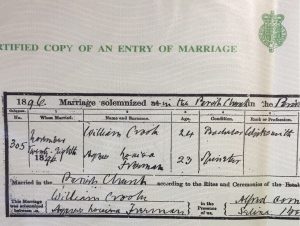 RTIFIED COPY OF AN ENTRY OF MARRIAGE
1896. Marriage solemnized at in the Parish Church in the
No. When Married. Name and Surname. Age. Condition. Rank or Profession.
305 November William Crook 24 Bachelor
Twenty-Eighth
1896 Louisa Freeman 23 Spinster
Married in the Parish Church according to the Rites and Ceremonies of the
This Marriage was solemnized between us, William Crook in the Presence of us, Alfred
Louisa Freeman